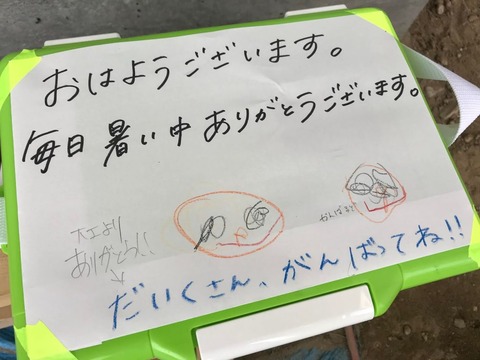 おはようございます。
毎日暑い中ありがとうございます。
がんばって
大工より
ありがとう!!
だいくさん、がんばってね!!